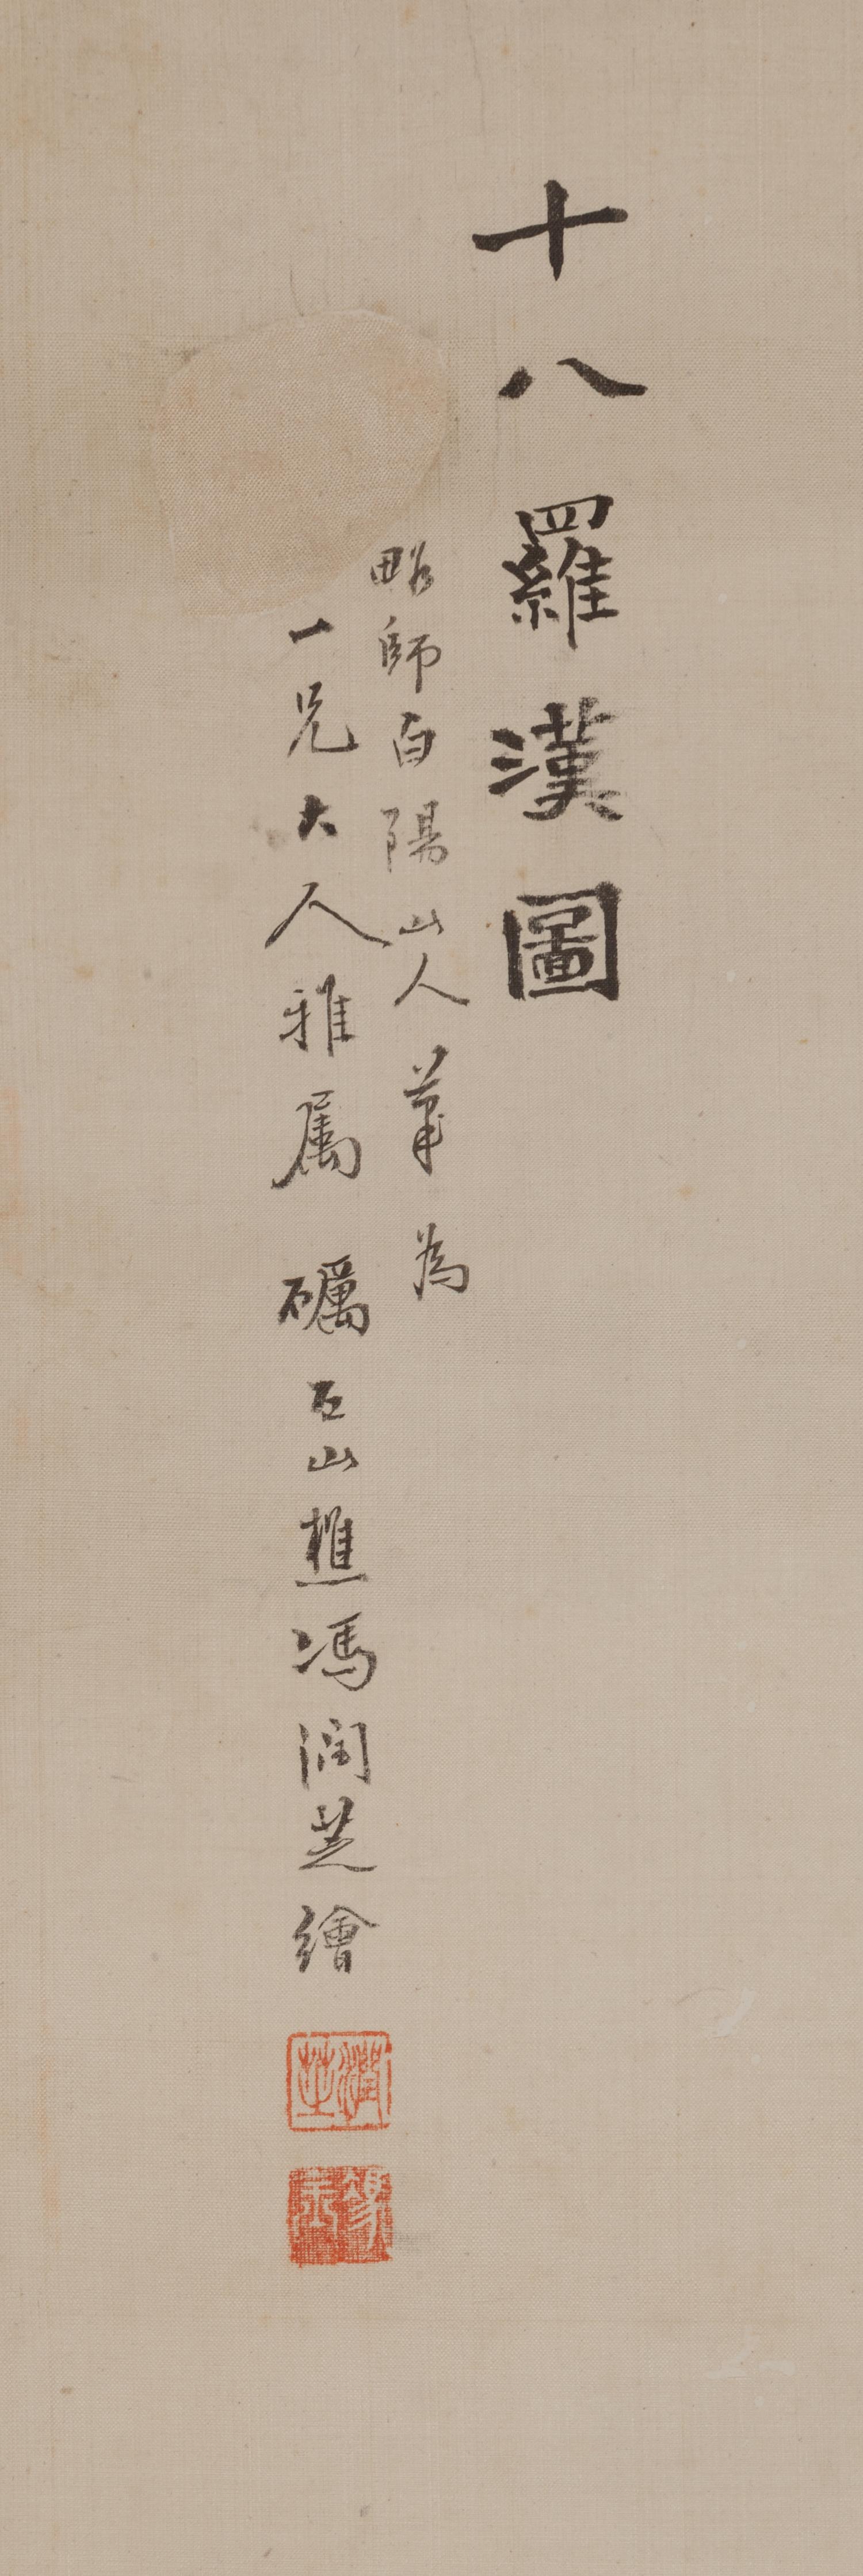 十八羅漢圖
略師白陽山人筆為
一兄大人雅属 礪石山樵馮潤芝繪
潤芝